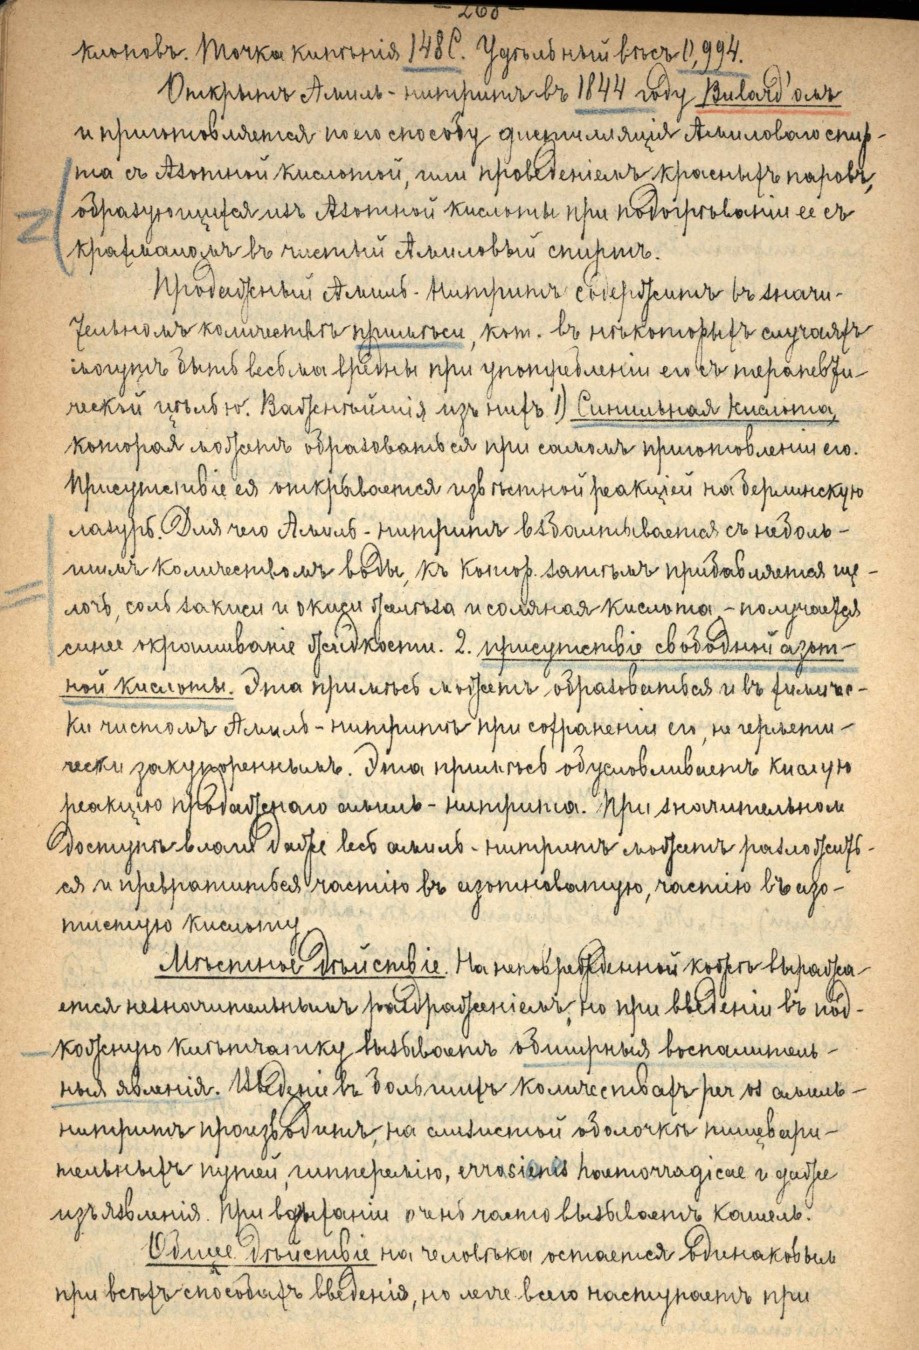 - 268 -
клоповъ. Точка кипѣнія 148 С. Удѣльный вѣсъ 0,994.
Открытъ Амиль-нитритъ въ 1844 году Bulard'омъ
и приготовляется по его способу дистилляція Амиловаго спир-
та съ Азотной кислотой, или проведеніемъ красныхъ паровъ,
образующихся изъ Азотной кислоты при подогрѣваніи ее съ
крахмаломъ въ чистый Амиловый спиртъ.
Продажный Амиль-Нитритъ содержитъ въ значи-
тельномъ количествѣ примѣси, кот. въ нѣкоторыхъ случаяхъ
могутъ быть весьма вредны при употребленіи его съ терапевти-
ческой цѣлью. Важнѣйшія изъ нихъ 1) Синильная кислота,
которая можетъ образоваться при самомъ приготовленіи его.
Присутствіе ея открывается извѣстной реакціей на берлинскую
лазурь. Для чего Амиль-нитритъ взбалтывается съ неболь-
шимъ количествомъ воды, къ котор. затѣмъ прибавляется ще-
лочь, соль закиси и окиси желѣза и соляная кислота, - получается
синее окрашиваніе жидкости. 2. присутствіе свободной азот-
ной кислоты. Эта примѣсь можетъ образоваться и въ химичес-
ки чистомъ Амиль-нитритѣ при сохраненіи его, не гермети-
чески закупореннымъ. Эта примѣсь обусловливаетъ кислую
реакцію продажнаго амиль-нитрита. При значительном
доступѣ влаги даже весь амиль-нитритъ можетъ разложить-
ся и превратиться частію въ азотноватую, частію въ азо-
тистую кислоту.
Мѣстное дѣйствіе. На неповрежденной кожѣ выража-
ется незначительнымъ раздраженіемъ, но при введеніи въ под-
кожную клѣтчатку вызываетъ обширныя воспалитель-
ныя явленія. Введеніе въ большихъ количествахъ per os амиль-
нитритъ производитъ, на слизистой оболочкѣ пищевари-
тельныхъ путей, гиперемію, errosiones haemorragicae и даже
изъязвленія. При вдыханіи очень часто вызываетъ кашель.
Общее дѣйствіе на человѣка остается одинаковым
при всѣхъ способахъ введенія, но легче всего наступаетъ при